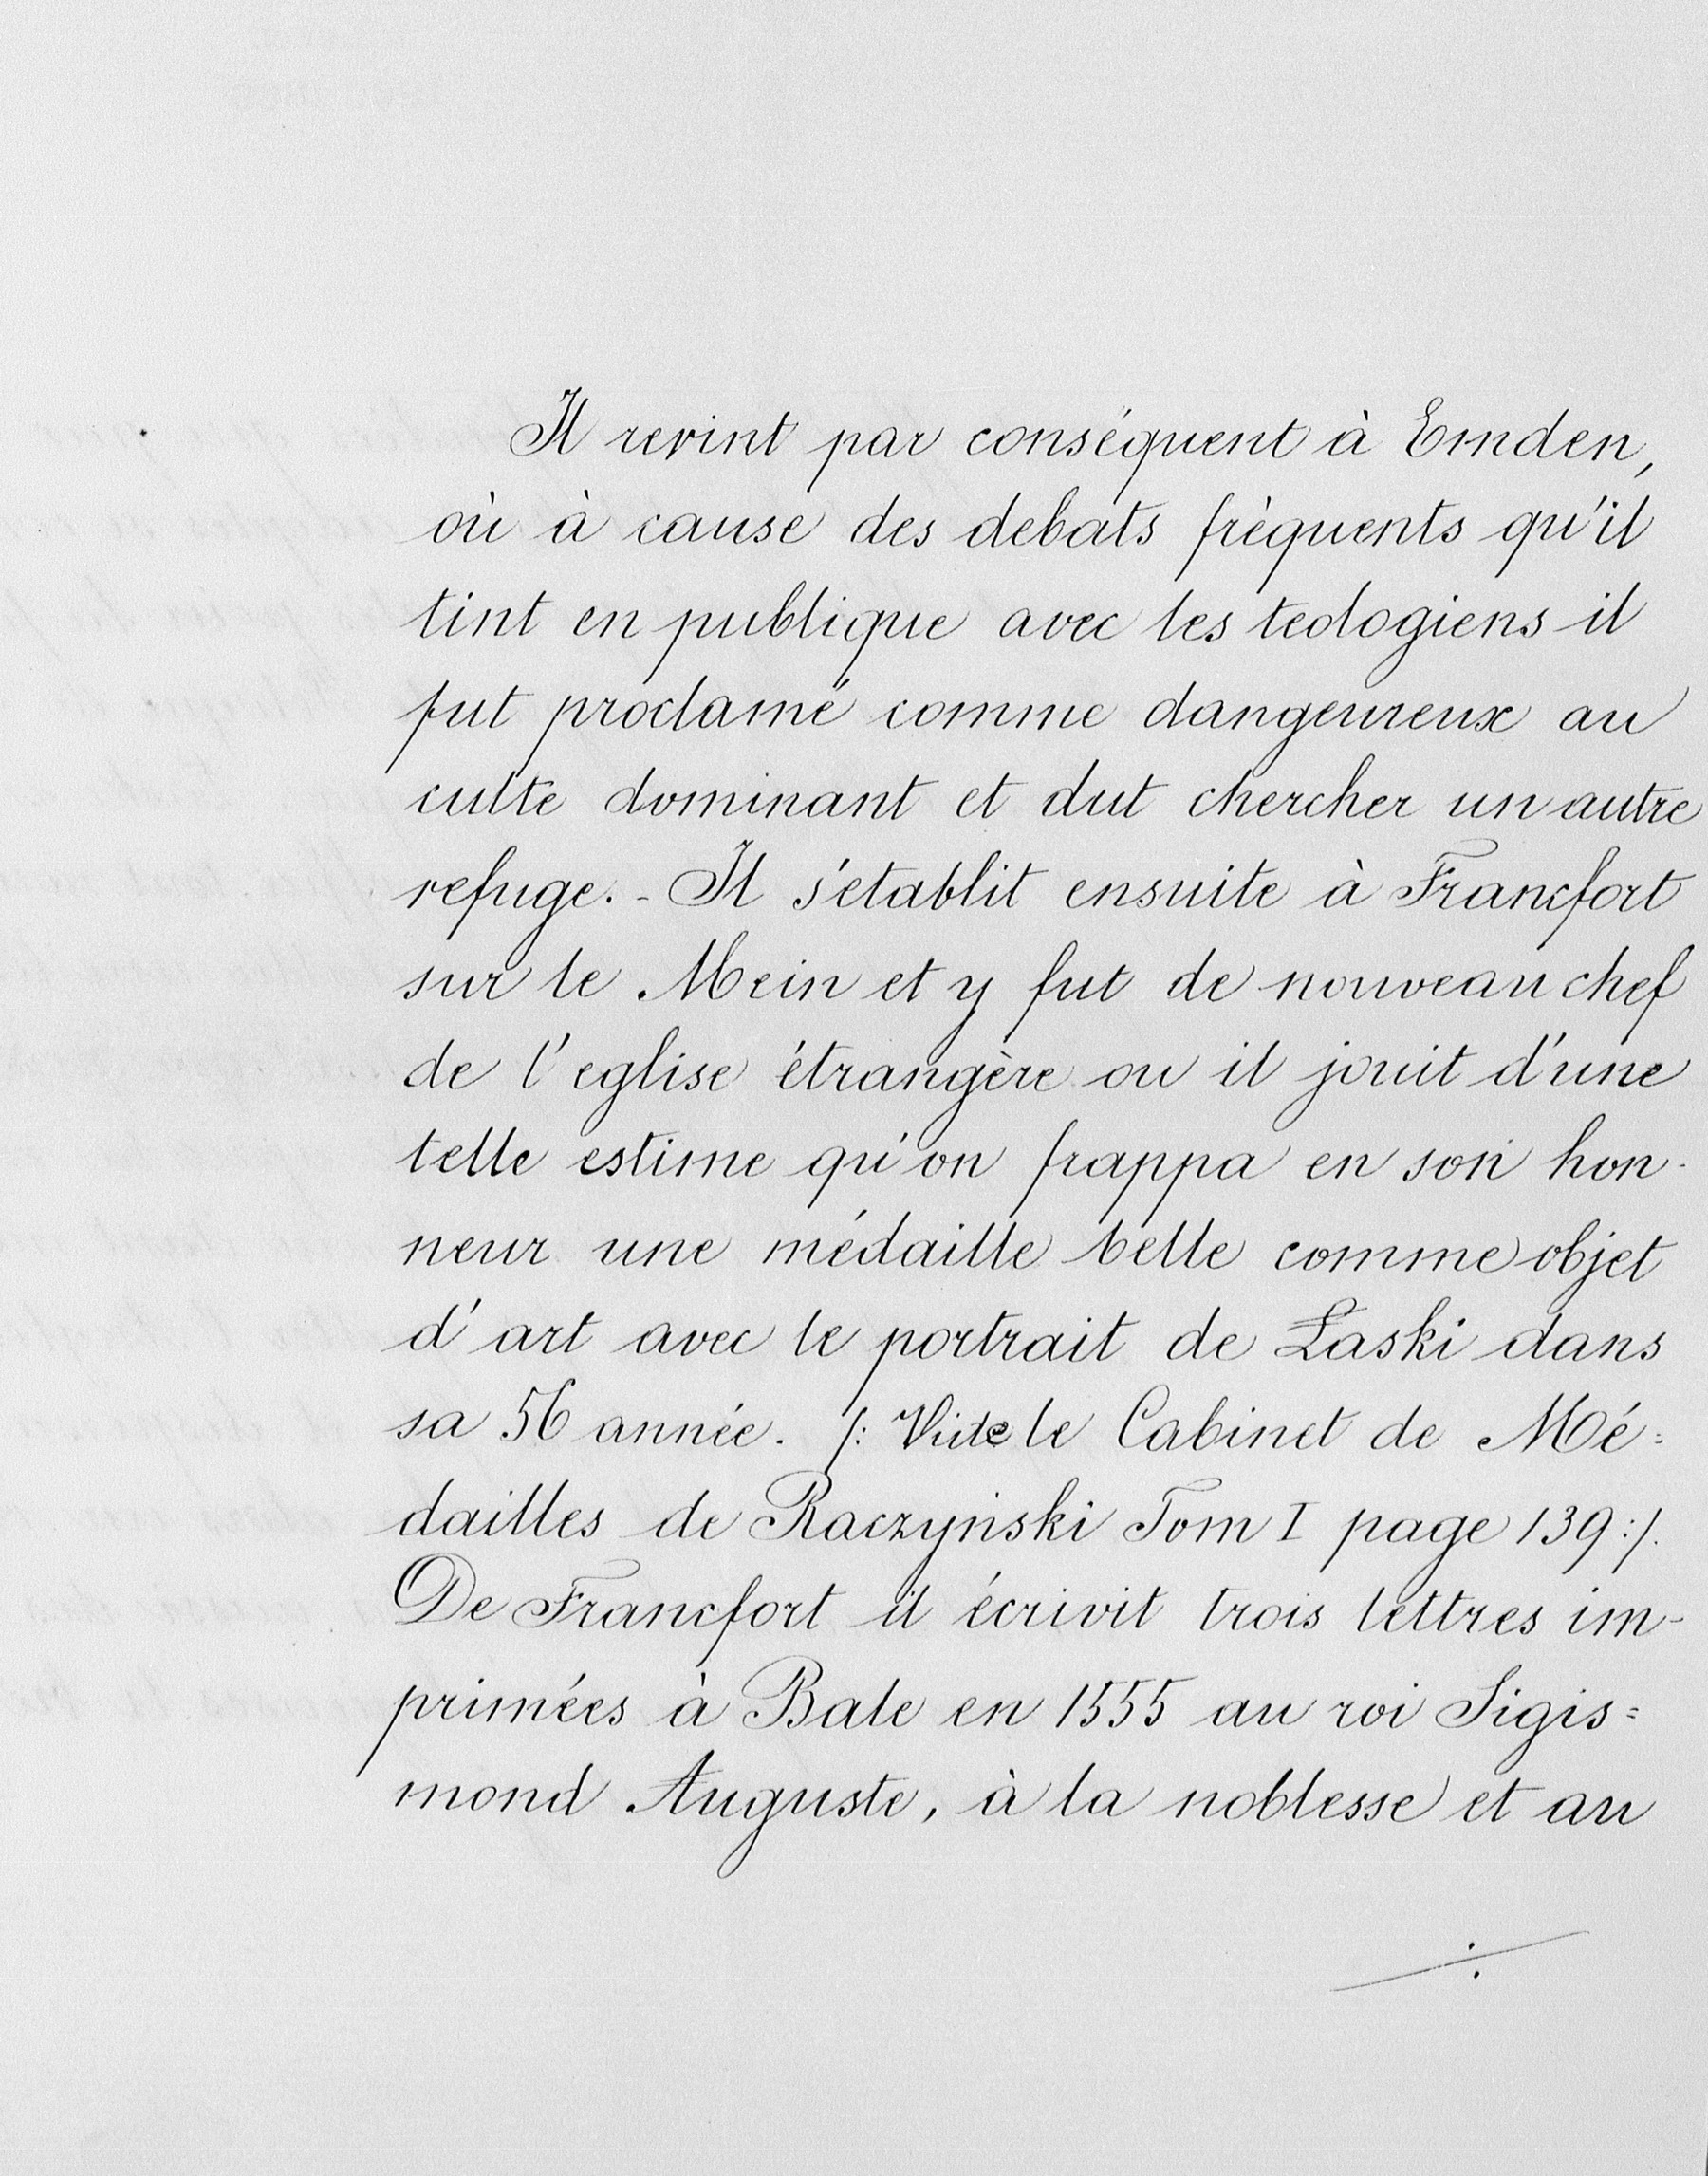 Il revint par conséquent à Emden,
où à cause des debats fréquents qu'il
tint en publique avec les teologiens il
fut proclamé comme dangeureux au
culte dominant et dut chercher un autre
refuge. - Il s'etablit ensuite à Francfort
sur le Mein et y fut de nouveau chef
de l'eglise étrangère ou il jouit d'une
telle estime qu'on frappa en son hon-
neur une médaille belle comme objet
d'art avec le portrait de Łaski dans
sa 56 année. /: Vide le Cabinet de Mé=
dailles de Raczyński Tom I page 139 :/.
De Francfort il écrivit trois lettres im-
primées à Bale en 1555 au roi Sigis=
mond Auguste, à la noblesse et au